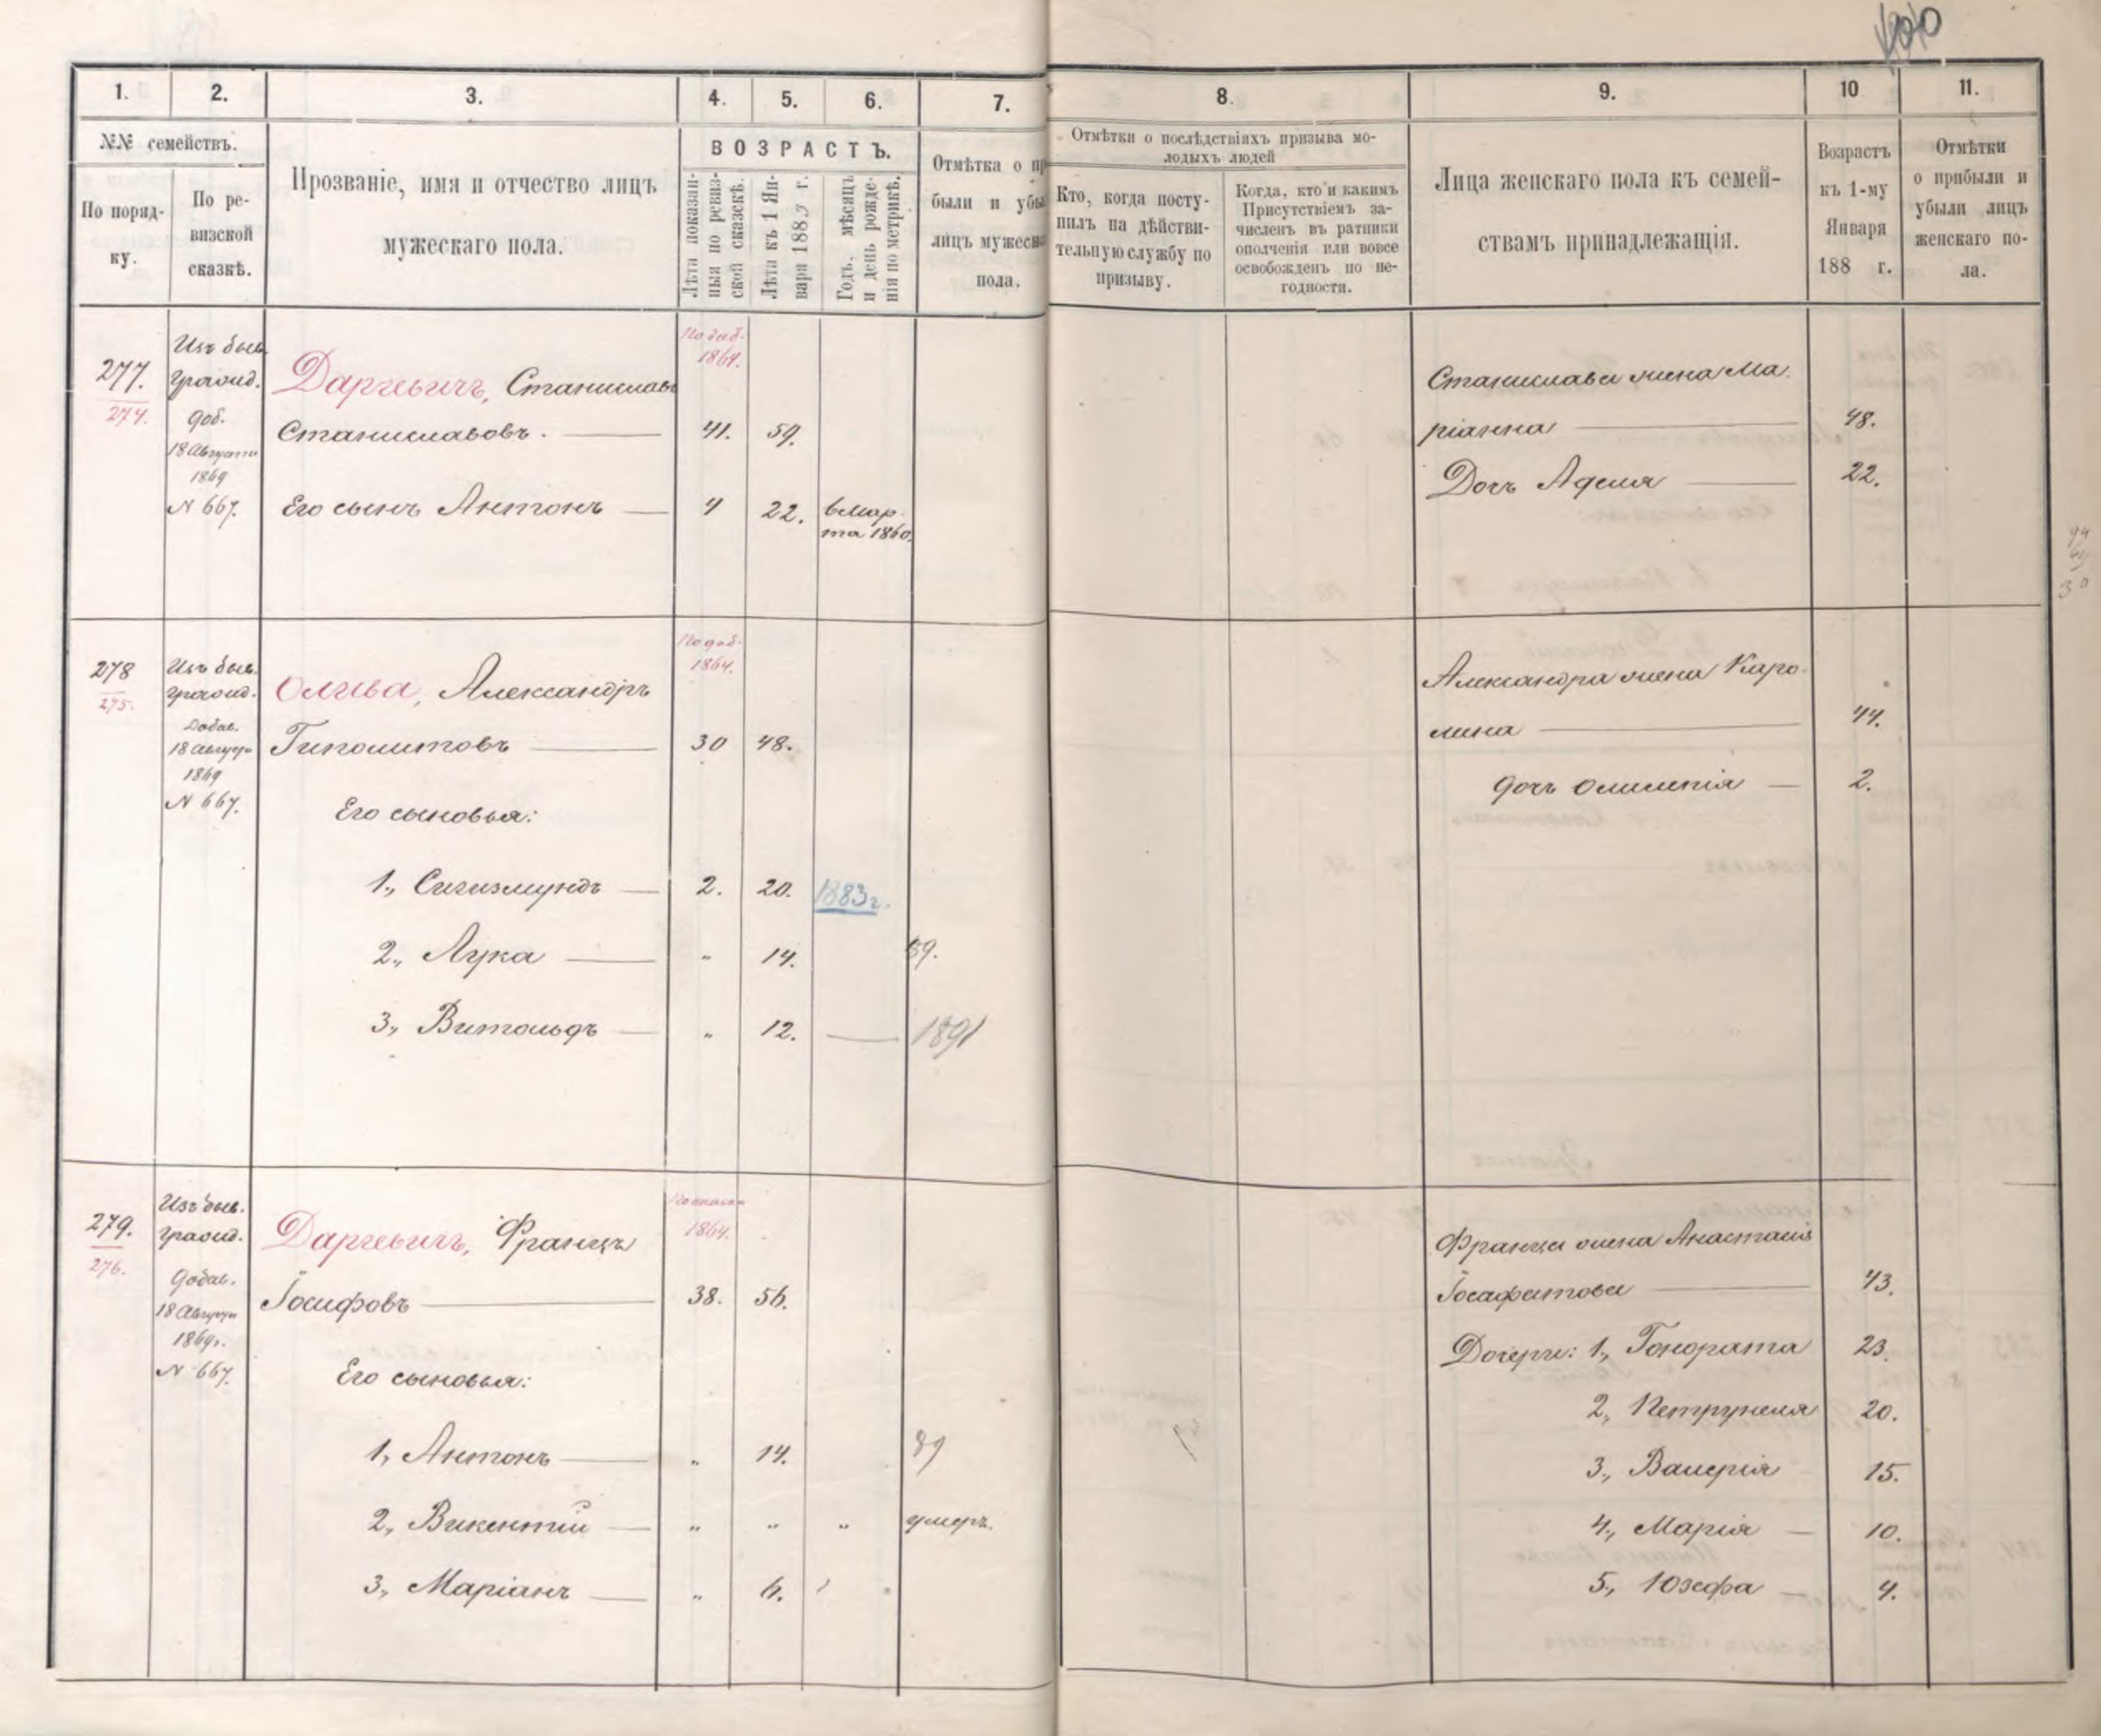 1.
2.
3.
4.
5.
6.
7.
8.
9.
10
11.
№№ семействъ.
По поряд-
ку.
По ре-
визской
сказкѣ.
Прозваніе, имя и отчество лицъ
мужескаго пола.
ВОЗРАСТЪ.
Лѣта показан-
ныя по ревиз-
ской сказкѣ.
Лѣта къ 1 Ян-
варя 188 г.
Годъ, мѣсяцъ
и день рожде-
нія по метрикѣ.
Отмѣтка о пр
были и убы
лицъ мужеска
пола.
Отмѣтки о послѣдствіяхъ призыва мо-
лодыхъ людей
Кто, когда посту-
пилъ на дѣйстви-
тельную службу по
призыву.
Когда, кто и какимъ
Присутствіемъ за-
численъ въ ратники
ополченія или вовсе
освобожденъ по не-
годности.
Лица женскаго пола къ семей-
ствамъ принадлежащія.
Возрастъ
къ 1-му
Января
188 г.
Отмѣтки
о прибыли и
убыли лицъ
женскаго по-
ла.
277.
274.
Изъ быв.
гражд.
доб.
18 Августа
1869
N 667.
Даргевичъ, Станиславъ
Станиславовъ.
По доб.
1864.
41.
59.
Его сынъ Антонъ
4
22.
6 Мар-
та 1860.
Станислава жена Ма-
ріанна
48.
Дочь Аделя
22.
278
275.
Изъ быв.
гражд.
Добав.
18 Августа
1869
N 667.
Олива, Александръ
Гиполитовъ
По доб.
1864.
30
48.
Его сыновья:
1., Сигизмундъ
2.
20.
1883 г.
2., Лука
"
14.
89.
3., Витольдъ
"
12.
1891
Александра жена Каро-
лина
44.
дочь Олимпія
2.
279.
276.
Изъ быв.
гражд.
Добав.
18 Августа
1869 г.
N 667.
Даргевичъ, Францъ
Іосифовъ
1864.
38.
56.
Его сыновья:
1., Антонъ
"
14.
89
2., Викентій
"
"
"
умеръ.
3., Маріанъ
"
6.
Франца жена Анастасія
Іосафатова
43.
Дочери: 1., Гонората
23.
2., Петрунеля
20.
3., Валерія
15.
4., Марія
10.
5., Юзефа
4.